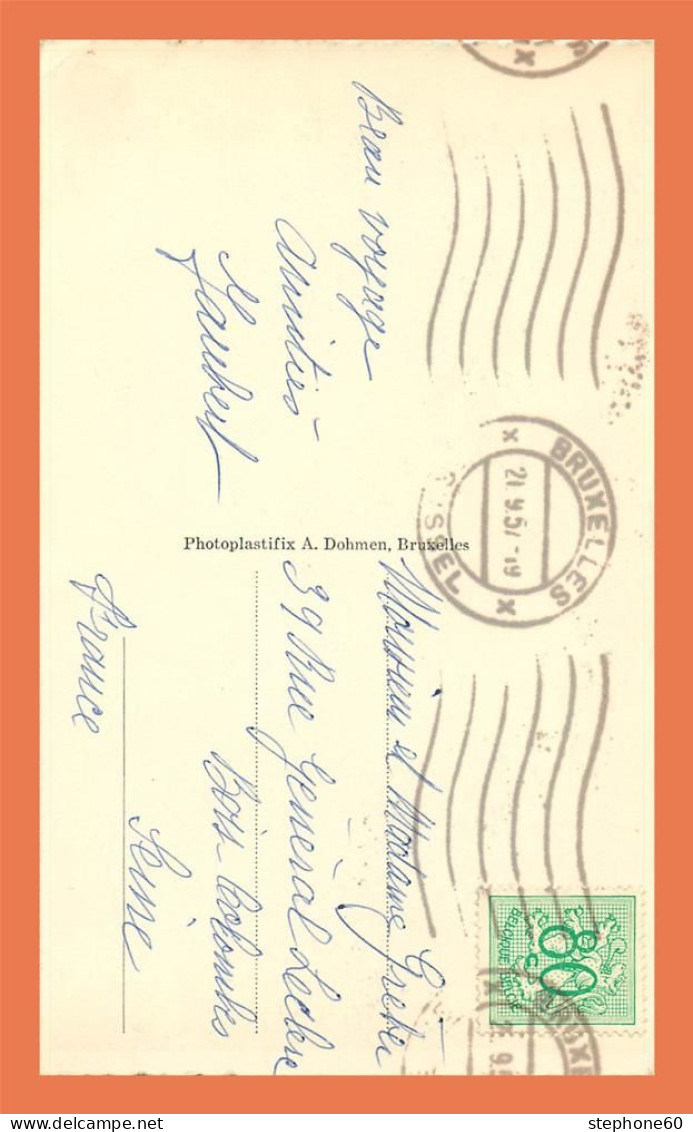 Beau voyage
Amitiés
Photoplastifix A. Dohmen, Bruxelles
Monsieur et Madame
39 Rue Général Leclerc
Bois-Colombes
Seine
France
BRUXELLES
21.9.57-19
BRUSSEL
X
X
BELGIQUE
80 c
BRUXE
stephone60